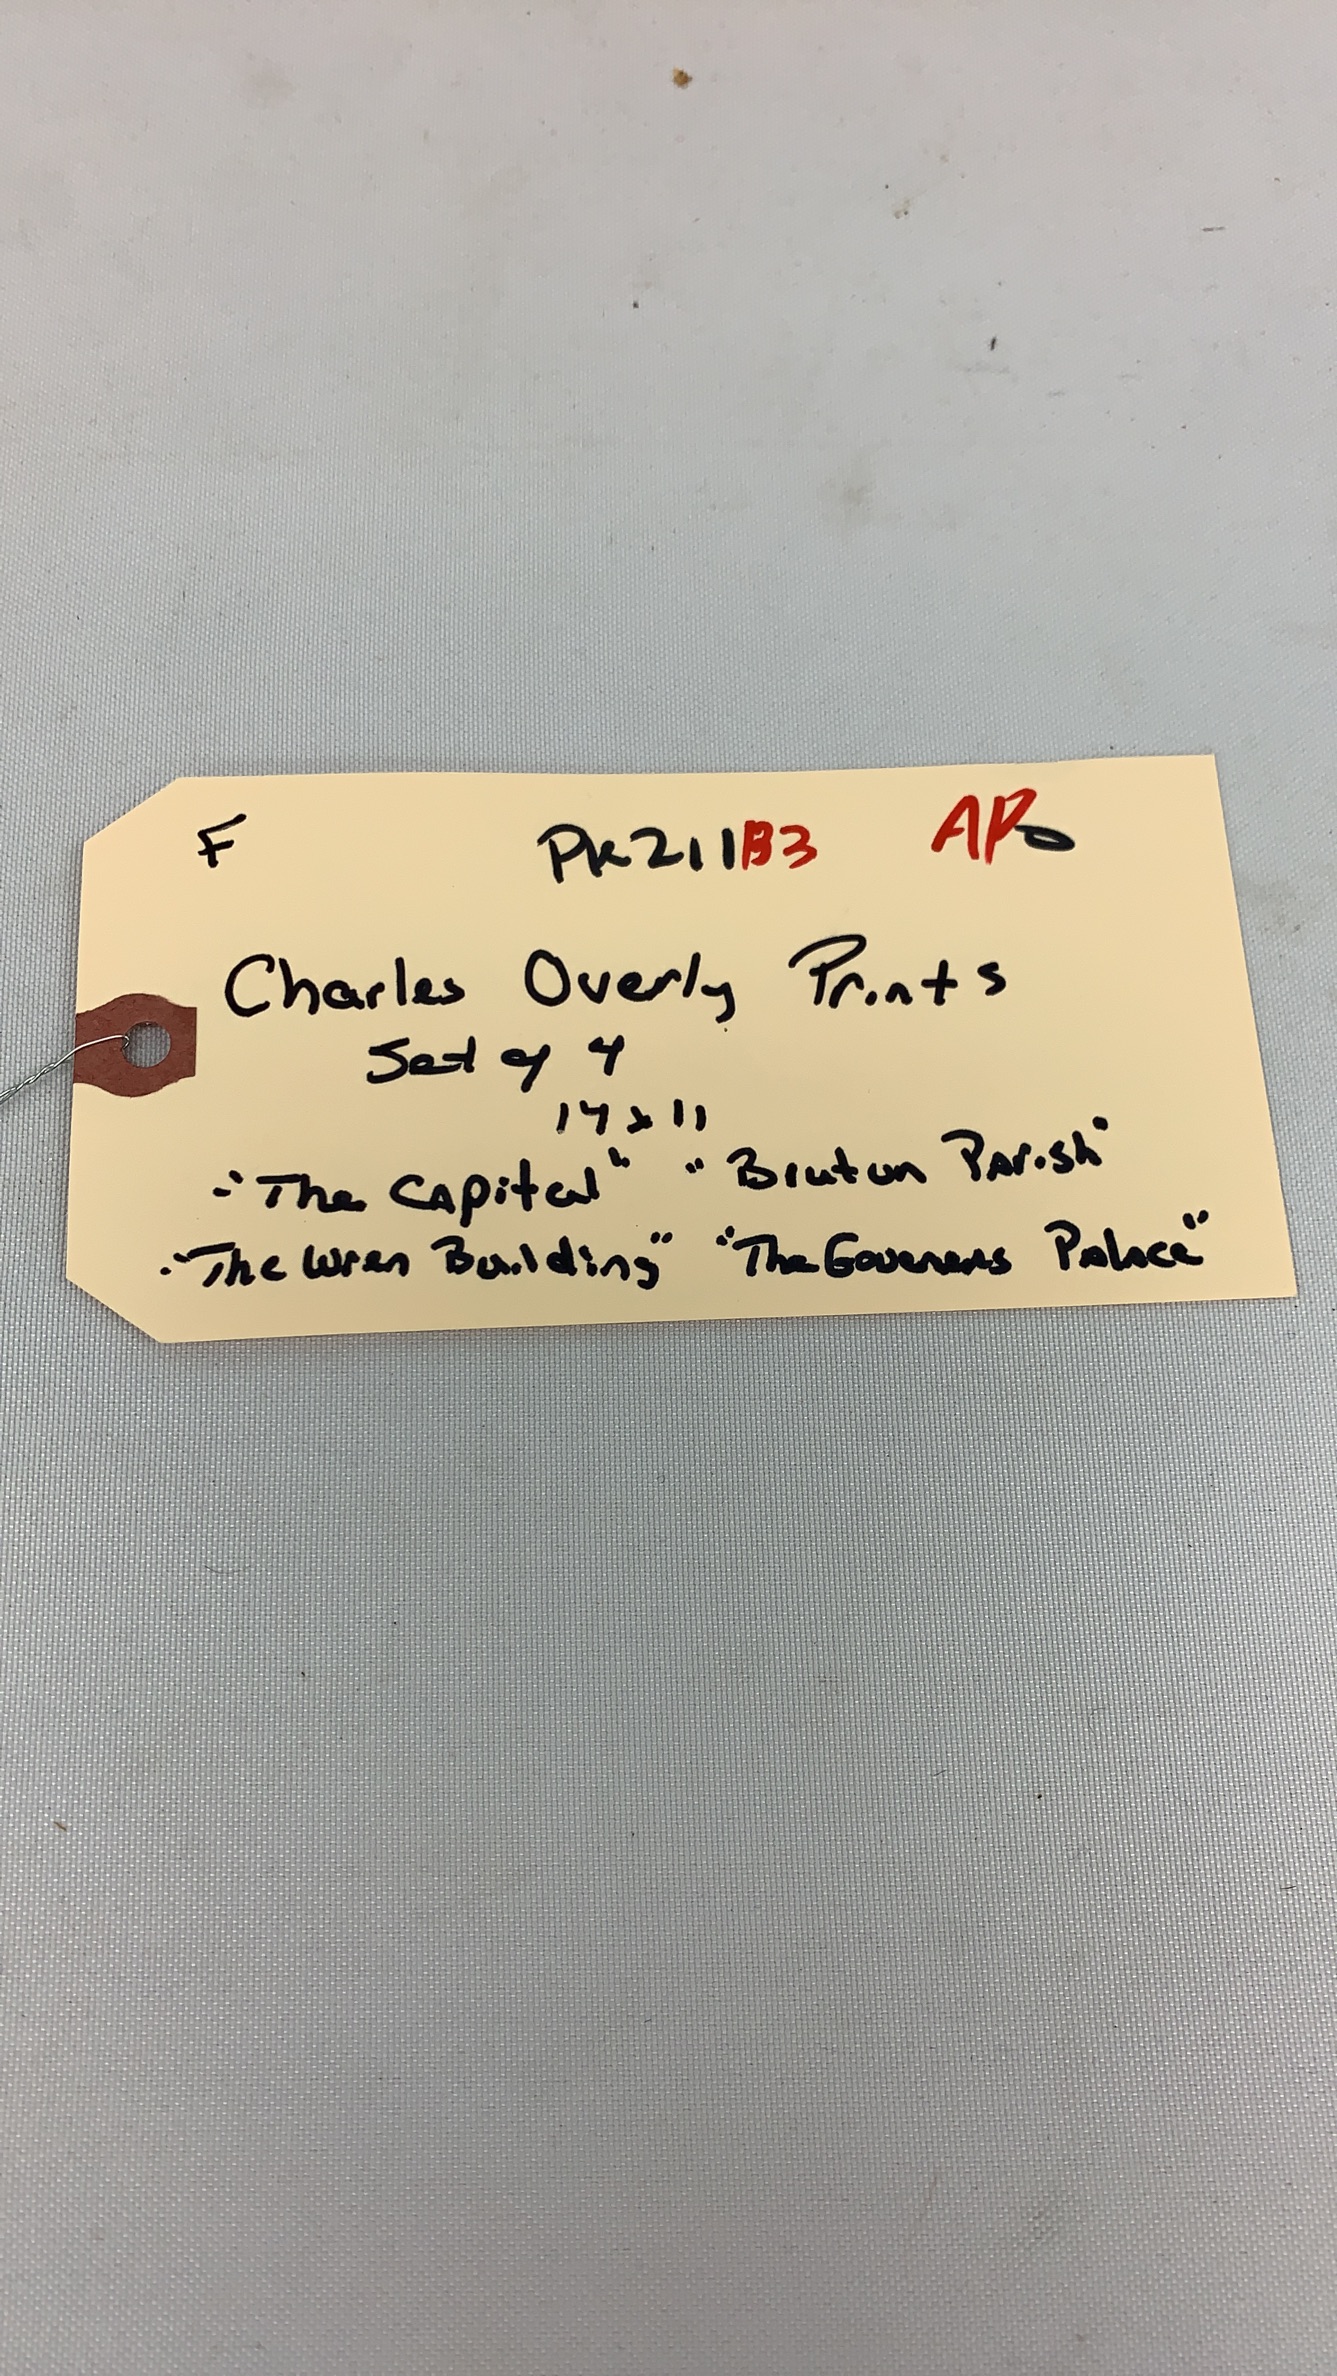 F PK211B3 AP
Charles Overly Prints
Set of 4
14 x 11
- "The Capital" "Bruton Parish"
. "The Wren Building" "The Goveners Palace"